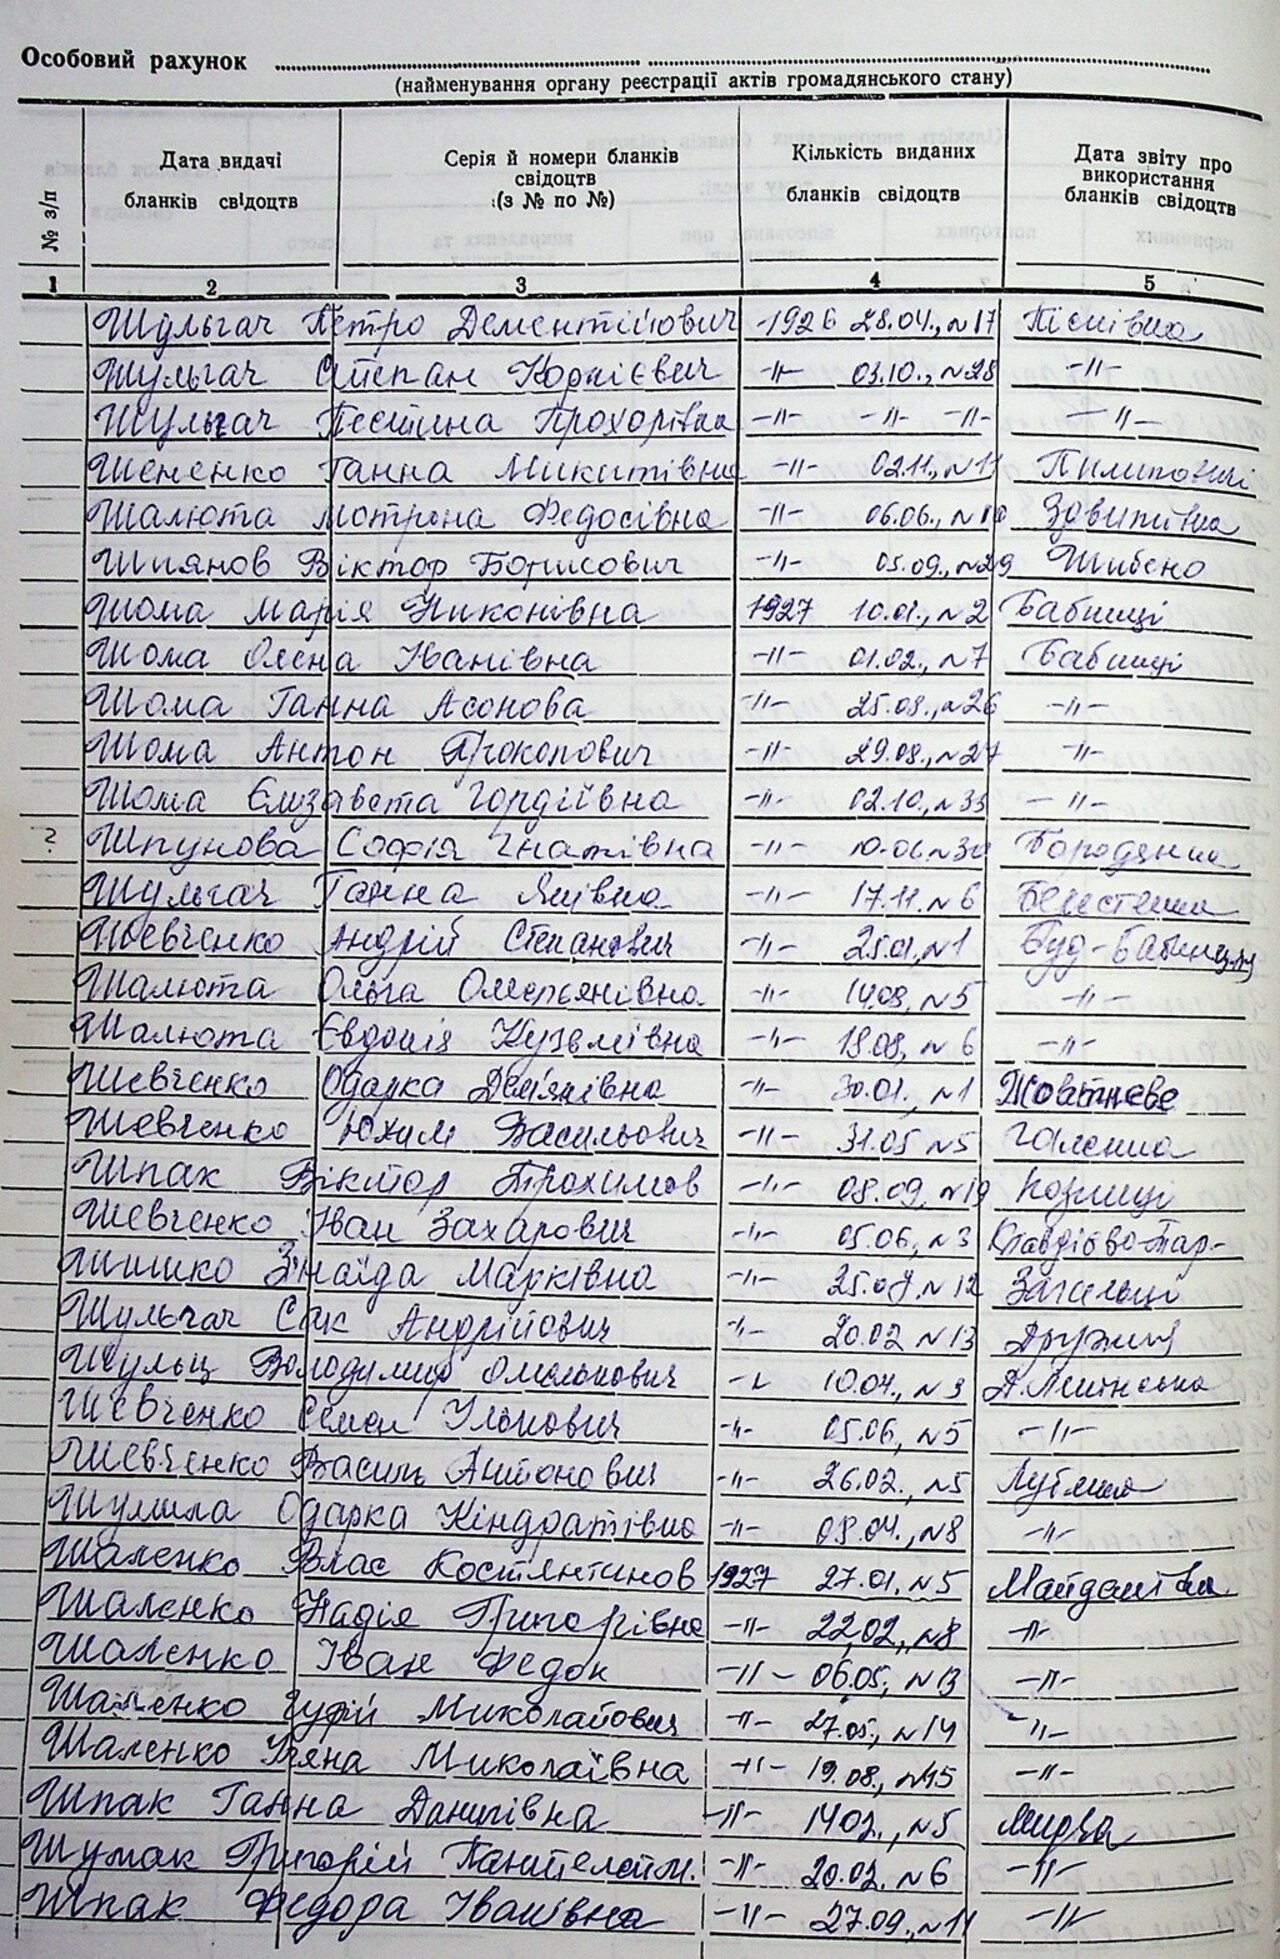 Особовий рахунок
(найменування органу реєстрації актів громадянського стану)
№ з/п
Дата видачі бланків свідоцтв
Серія й номери бланків свідоцтв (з № по №)
Кількість виданих бланків свідоцтв
Дата звіту про використання бланків свідоцтв
1 2 3 4 5
Шульгач Петро Дементійович 1926 28.04., №17 Пісківка
Шульгач Степан Корнієвич -"- 03.10., №28 -"-
Шульгач Прохорівна -"- -"- -"- -"-
Шененко Ганна Микитівна -"- 02.11., №11 Пилиповичі
Шалюта Мотрона Федосівна -"- 06.06., Здвижівка
Шиянов Віктор Борисович -"- 05.09., №29 Шибено
Шома Марія Никонівна 1927 10.01., №2 Бабинці
Шома Олена Іванівна -"- 01.02., №7 Бабинці
Шома Ганна -"- 25.08., №26 -"-
Шома Антон Прокопович -"- 29.08., №27 -"-
Шома Єлизавета Гордіївна -"- 02.10., №33 -"-
? Шпунова Софія Гнатівна -"- №30 Бородянка
Шульгач Ганна -"- 17.11. №6 Берестянка
Шевченко Андрій Степанович -"- 25.01, №1 Буд-Бабинецька
Шалюта Ольга Омелянівна -"- 14.08, №5 -"-
Шалюта Євдокія Кузьмівна -"- 18.08, №6 -"-
Шевченко Одарка Дем'янівна -"- 30.01., №1 Жовтнєве
Шевченко Юхим Васильович -"- 31.05 №5 Галенка
Шпак Віктор Трохимов -"- 08.09, №19 Козинці
Шевченко Іван Захарович -"- 05.06, №3 Клавдієво-Тар-
Шишко Зінаїда Марківна -"- №12 Загальці
Шульгач Сак Андрійович -"- 20.02 №13 Дружня
Шульц Володимир Омелькович -"- 10.04., Д.Ленінська
Шевченко Семен Улькович -"- 05.06, №5 -"-
Шевченко Василь Антонович -"- 26.02., №5 Лубянка
Шумила Одарка Кіндратівна -"- 08.04., №8 -"-
Шаленко Влас Костянтинов 1927 27.01, №5 Майданівка
Шаленко Надія Григорівна -"- 22.02., №8 -"-
Шаленко Іван Федок -"- 06.05, №13 -"-
Шаленко Гурій Миколайович -"- 27.05, №14 -"-
Шаленко Уляна Миколаївна -"- 19.08., №15 -"-
Шпак Ганна Данилівна -"- №5 Мирча
Шумак Григорій Пантелейм. -"- 20.02. №6 -"-
Шпак Федора Іванівна -"- 27.09., №11 -"-